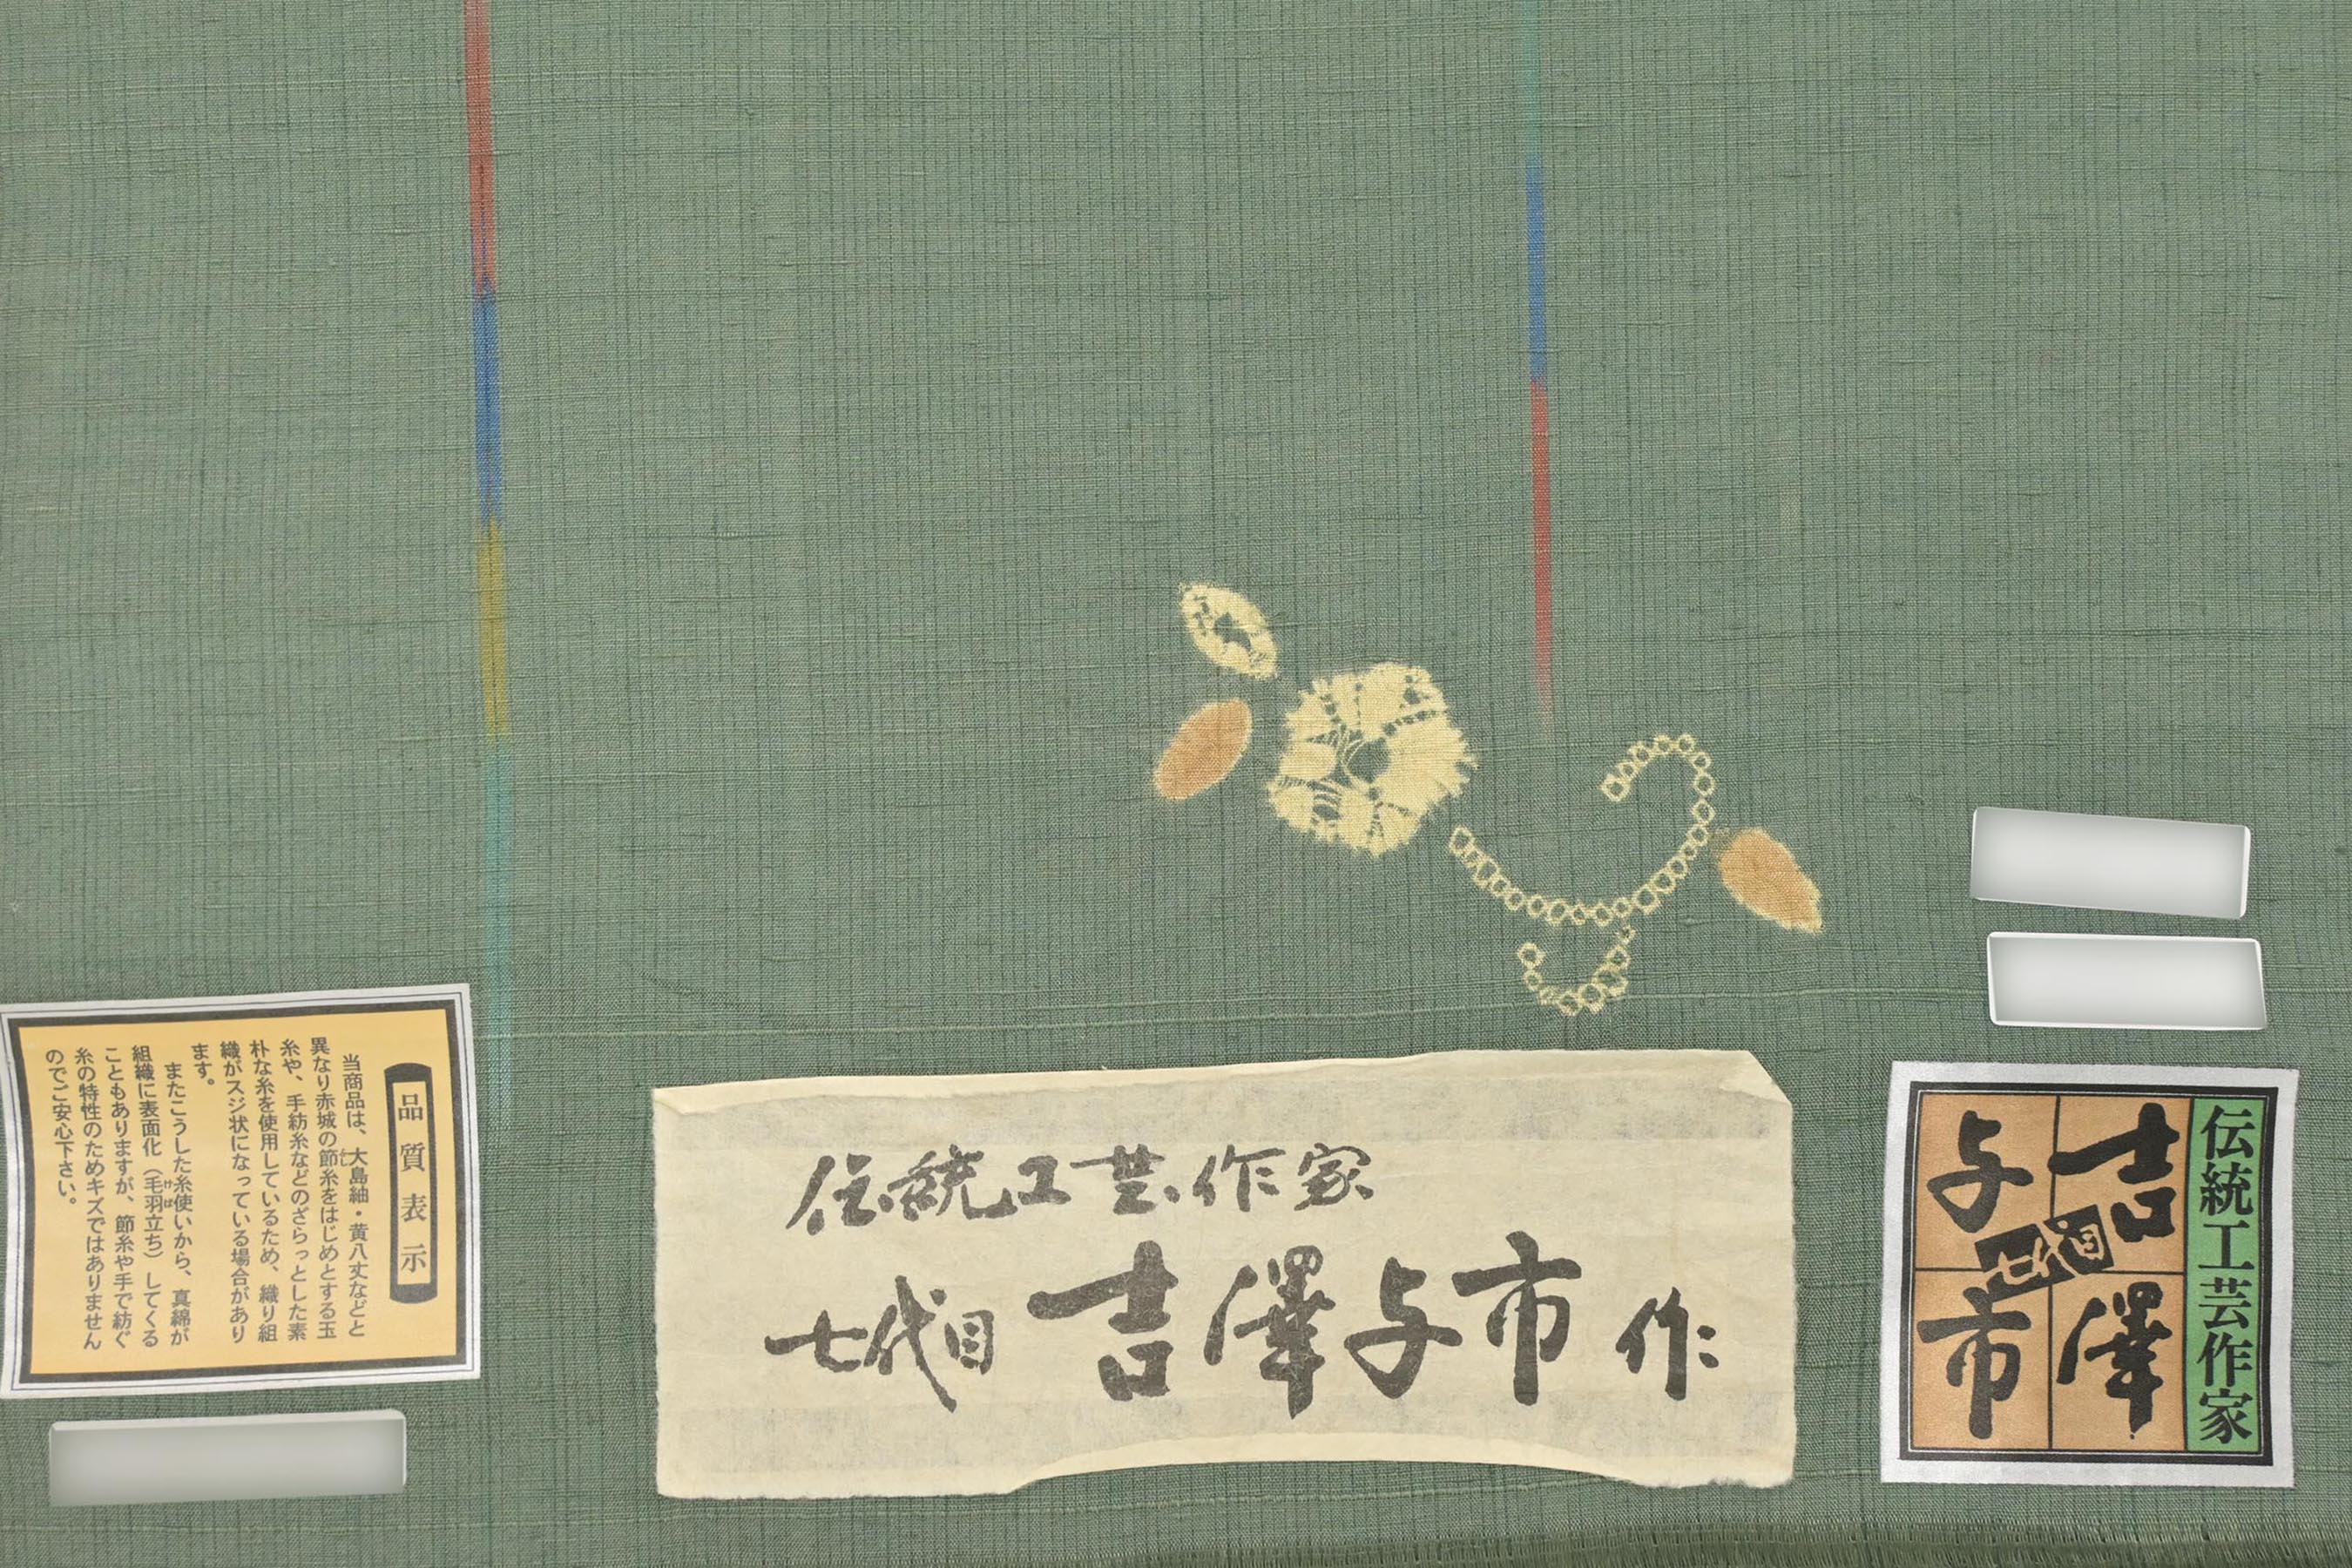 品質表示
当商品は、大島紬・黄八丈などと
異なり赤城の節糸をはじめとする玉
糸や、手紡糸などのざらっとした素
朴な糸を使用しているため、織り組
織がスジ状になっている場合があり
ます。
またこうした糸使いから、真綿が
組織に表面化（毛羽立ち）してくる
こともありますが、節糸や手で紡ぐ
糸の特性のためキズではありません
のでご安心下さい。
伝統工芸作家
七代目 吉澤与市 作
伝統工芸作家
吉澤
与市
七代目